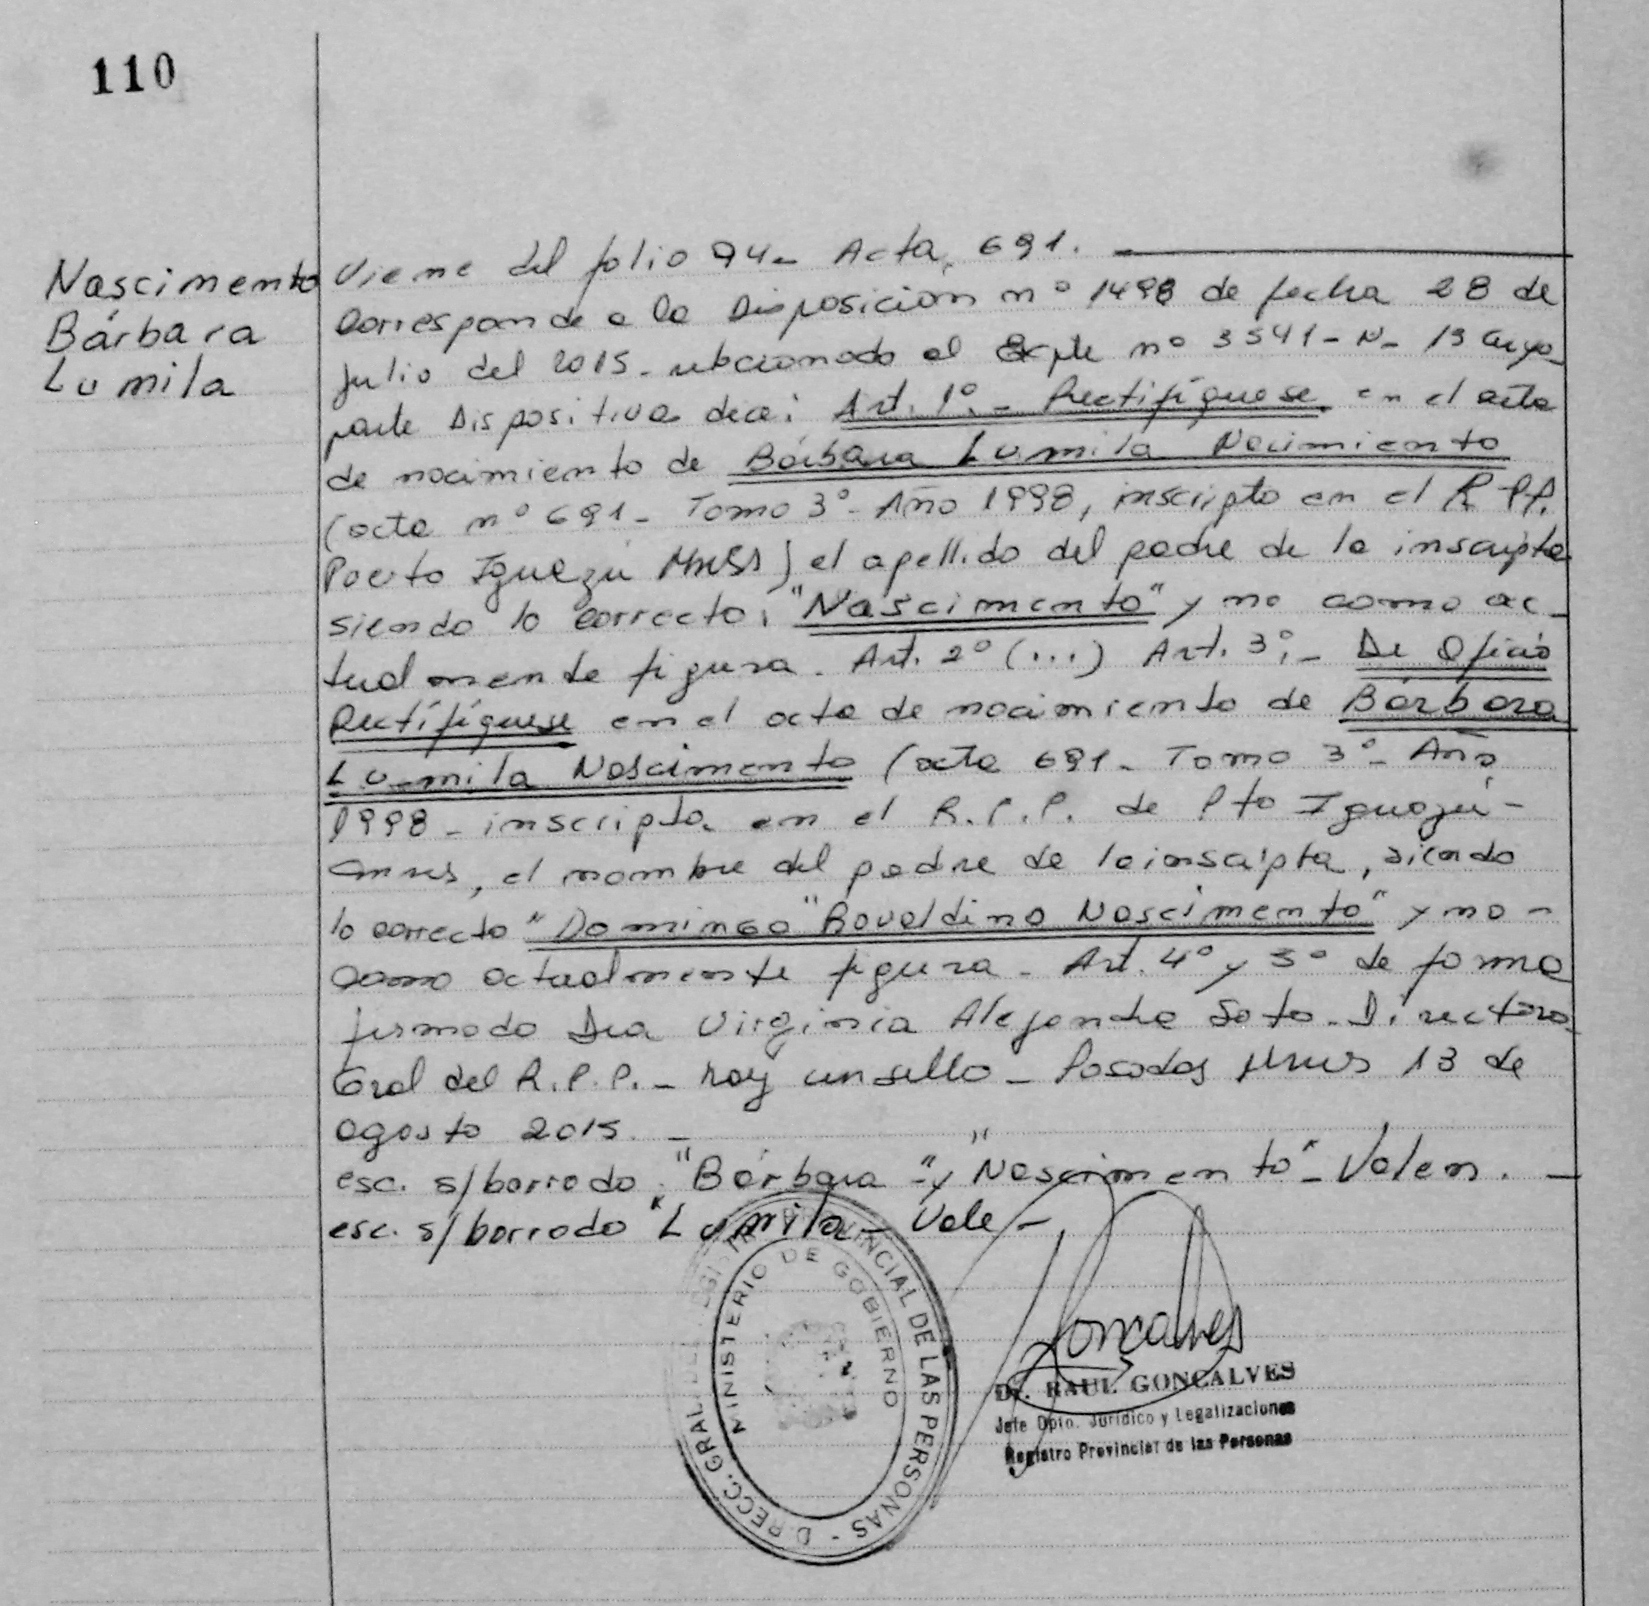 110
Nascimento
Bárbara
Lumila
Viene del folio 94- Acta, 691.
Corresponde a la Disposición nº 1498 de fecha 28 de
julio del 2015 - relacionado al Expte nº 3541-N- 13 cuya
parte Dispositiva dice: Art. 1º.- Rectifíquese en el acta
de nacimiento de Bárbara Lumila Nacimiento
(acta nº 691- Tomo 3º- Año 1998, inscripto en el R.P.P.
Puerto Iguazú Mnes) el apellido del padre de la inscripta
siendo lo correcto: "Nascimento" y no como ac-
tualmente figura. Art. 2º (...) Art. 3º.- De Oficio
Rectifíquese en el acta de nacimiento de Bárbara
Lumila Nascimento (acta 691- Tomo 3º- Año
1998- inscripta en el R.P.P. de Pto Iguazú-
Mnes, el nombre del padre de la inscripta, siendo
lo correcto "Domingo" Bovaldino Nascimento" y no -
como actualmente figura. Art. 4º y 5º de forma
firmado Dra Virginia Alejandra Soto- Directora
Gral del R.P.P.- hay un sello - Posadas Mnes 13 de
agosto 2015. -
esc. s/borrado: "Bárbara" y "Nascimento" - Valen. -
esc. s/borrado "Lumila - Vale -
DIRECC. GRAL. DEL REGISTRO PROVINCIAL DE LAS PERSONAS -
MINISTERIO DE GOBIERNO
Goncalves
Dr. RAUL GONCALVES
Jefe Dpto. Jurídico y Legalizaciones
Registro Provincial de las Personas